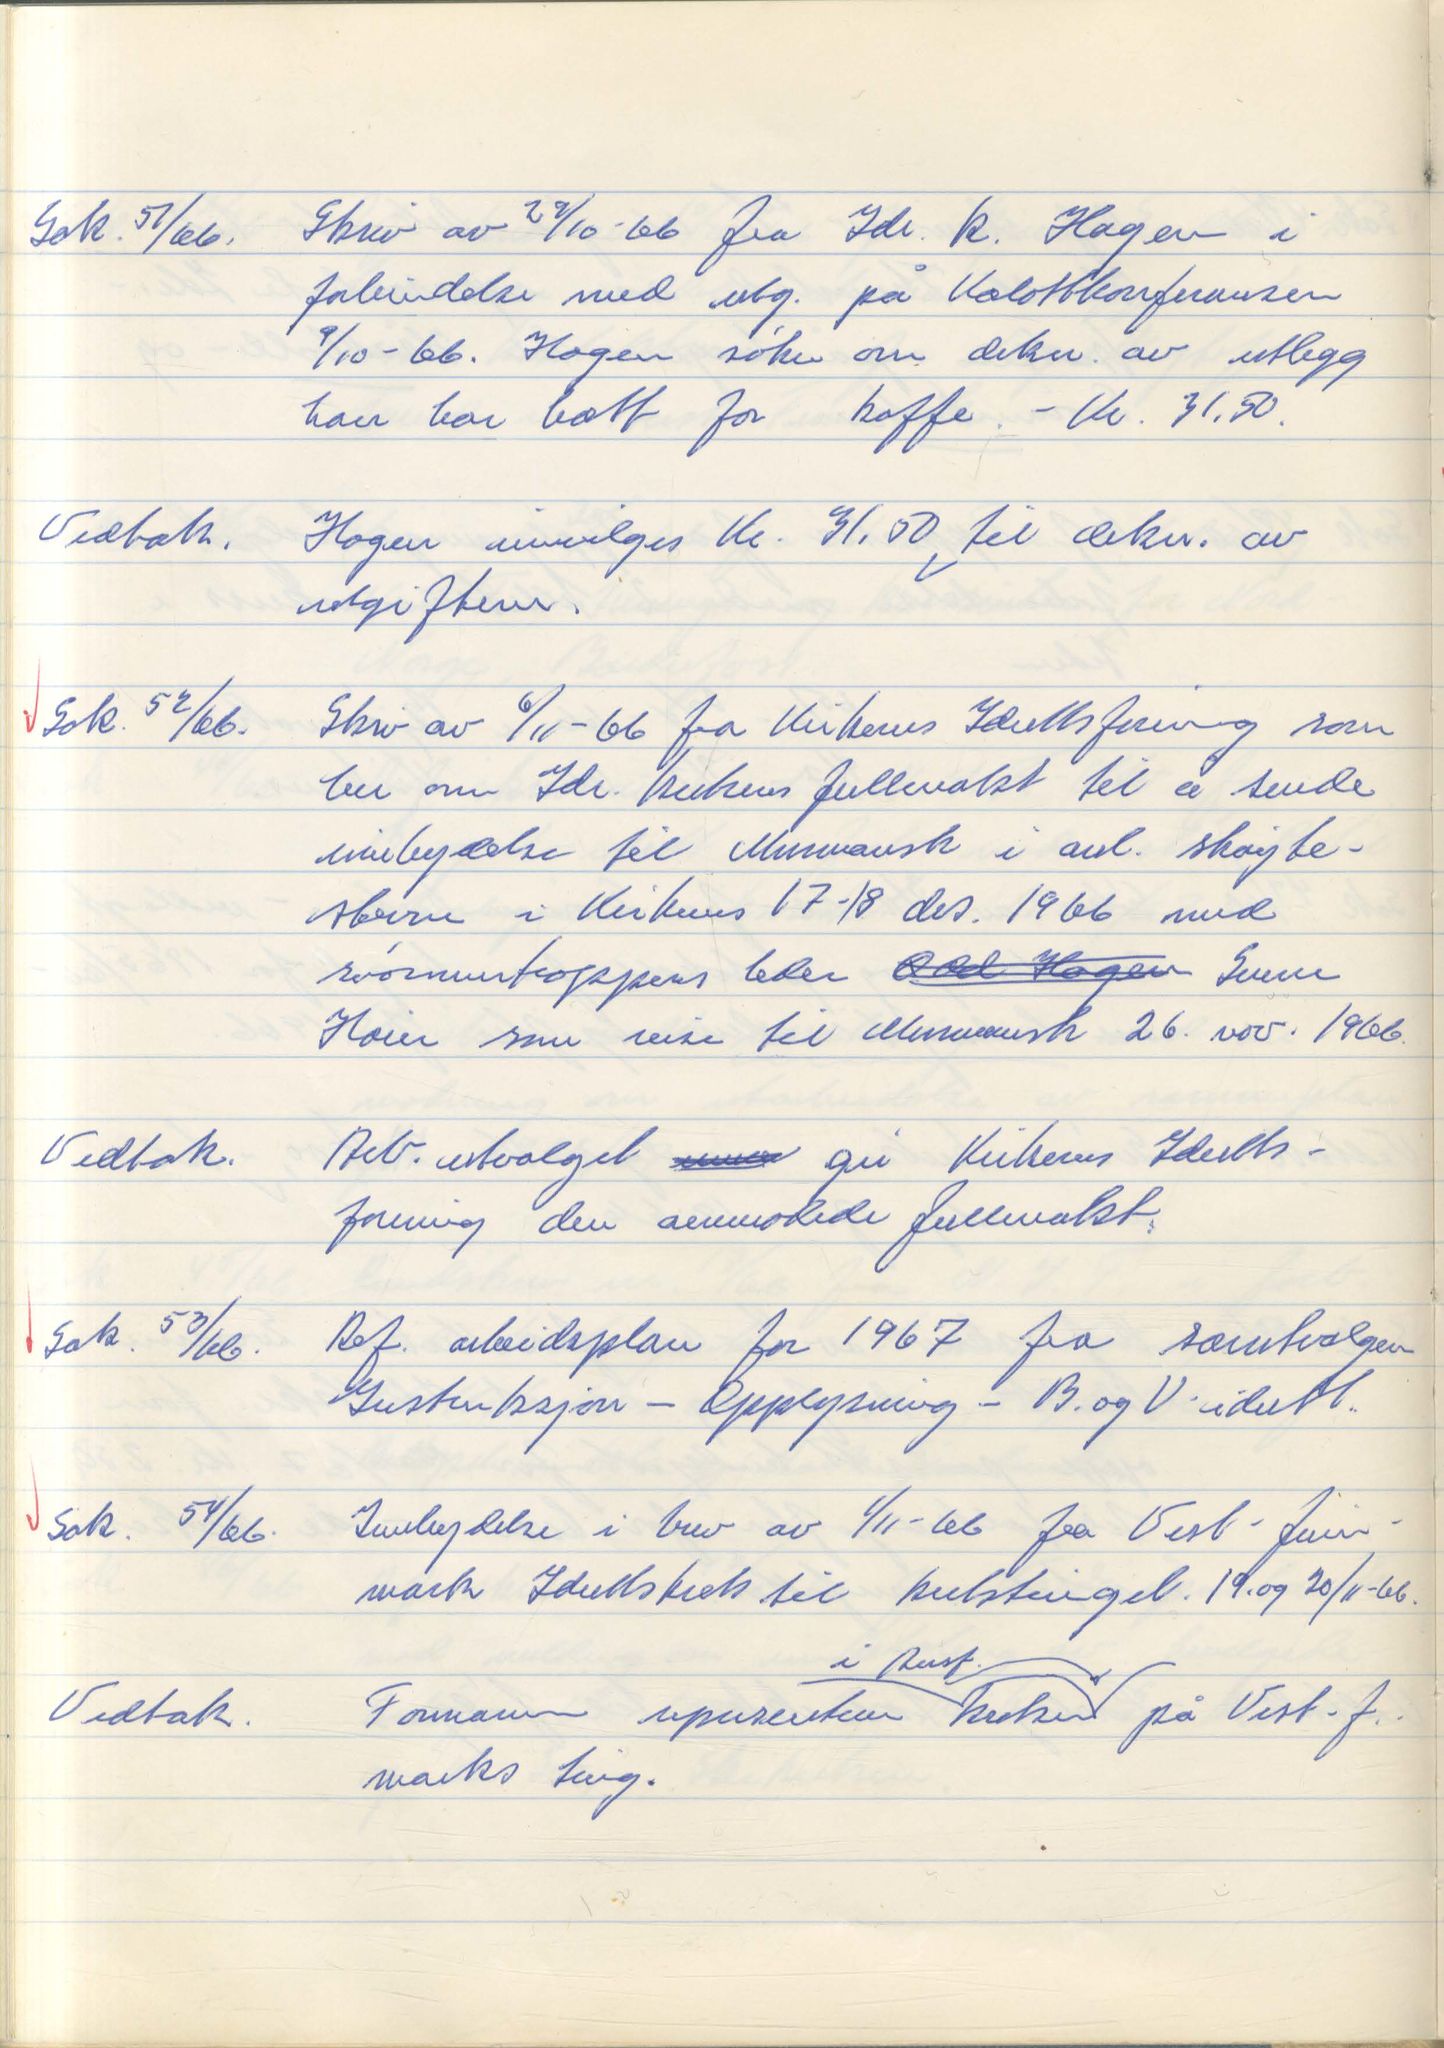 Sak. 51/66. Skriv av 29/10-66 fra Idr. K. Hagen i
forbindelse med utg. på Kalottkonferansen
9/10-66. Hagen søker om dekn. av utlegg
han har hatt for kaffe. - Kr. 31.50.
Vedtak. Hagen innvilges Kr. 31.50 til dekn. av
utgiftene.
Sak. 52/66. Skriv av 6/11-66 fra Kirkenes Idrettsforening som
ber om Idr. kretsens fullmakt til å sende
innbydelse til Murmansk i anl. skøyte-
stevne i Kirkenes 17-18 des. 1966 med
svømmetroppens leder Odd Hagen Sverre
Høier som reise til Murmansk 26. nov. 1966.
Vedtak. Arb. utvalget gir Kirkenes Idretts-
forening den anmodede fullmakt.
Sak. 53/66. Ref. arbeidsplan for 1967 fra særutvalgen
Instruksjon - Opplysning - B. og V. idrett.
Sak. 54/66. Innbydelse i brev av 1/11-66 fra Vest-finn-
mark Idrettskrets til kretstinget. 19. og 20/11-66.
i Aust.
Vedtak. Formannen representerer kretsen på Vest-f.
marks ting.